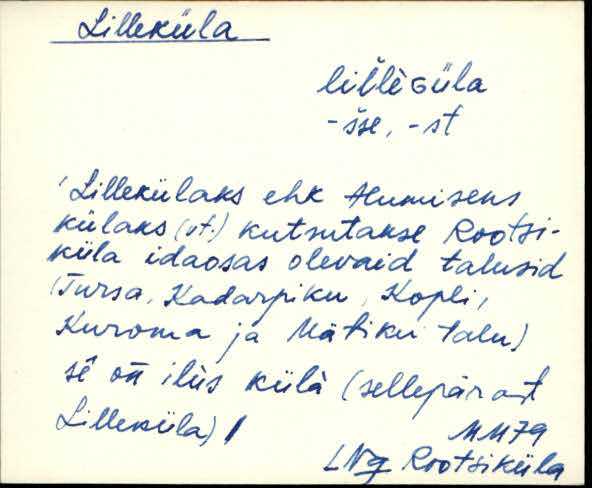 Lilleküla
lil̆l̀eGüla
-s̆se, -st
'Lillekülaks ehk Alumiseks
külaks (vt.) kutsutakse Rootsi-
küla idaosas olevaid talusid
(Tursa, Kadarpiku, Kopli,
Kuroma ja Mätiku talu)
sē on ilùs külà (sellepärast
Lilleküla) /
MM79
LNg Rootsiküla